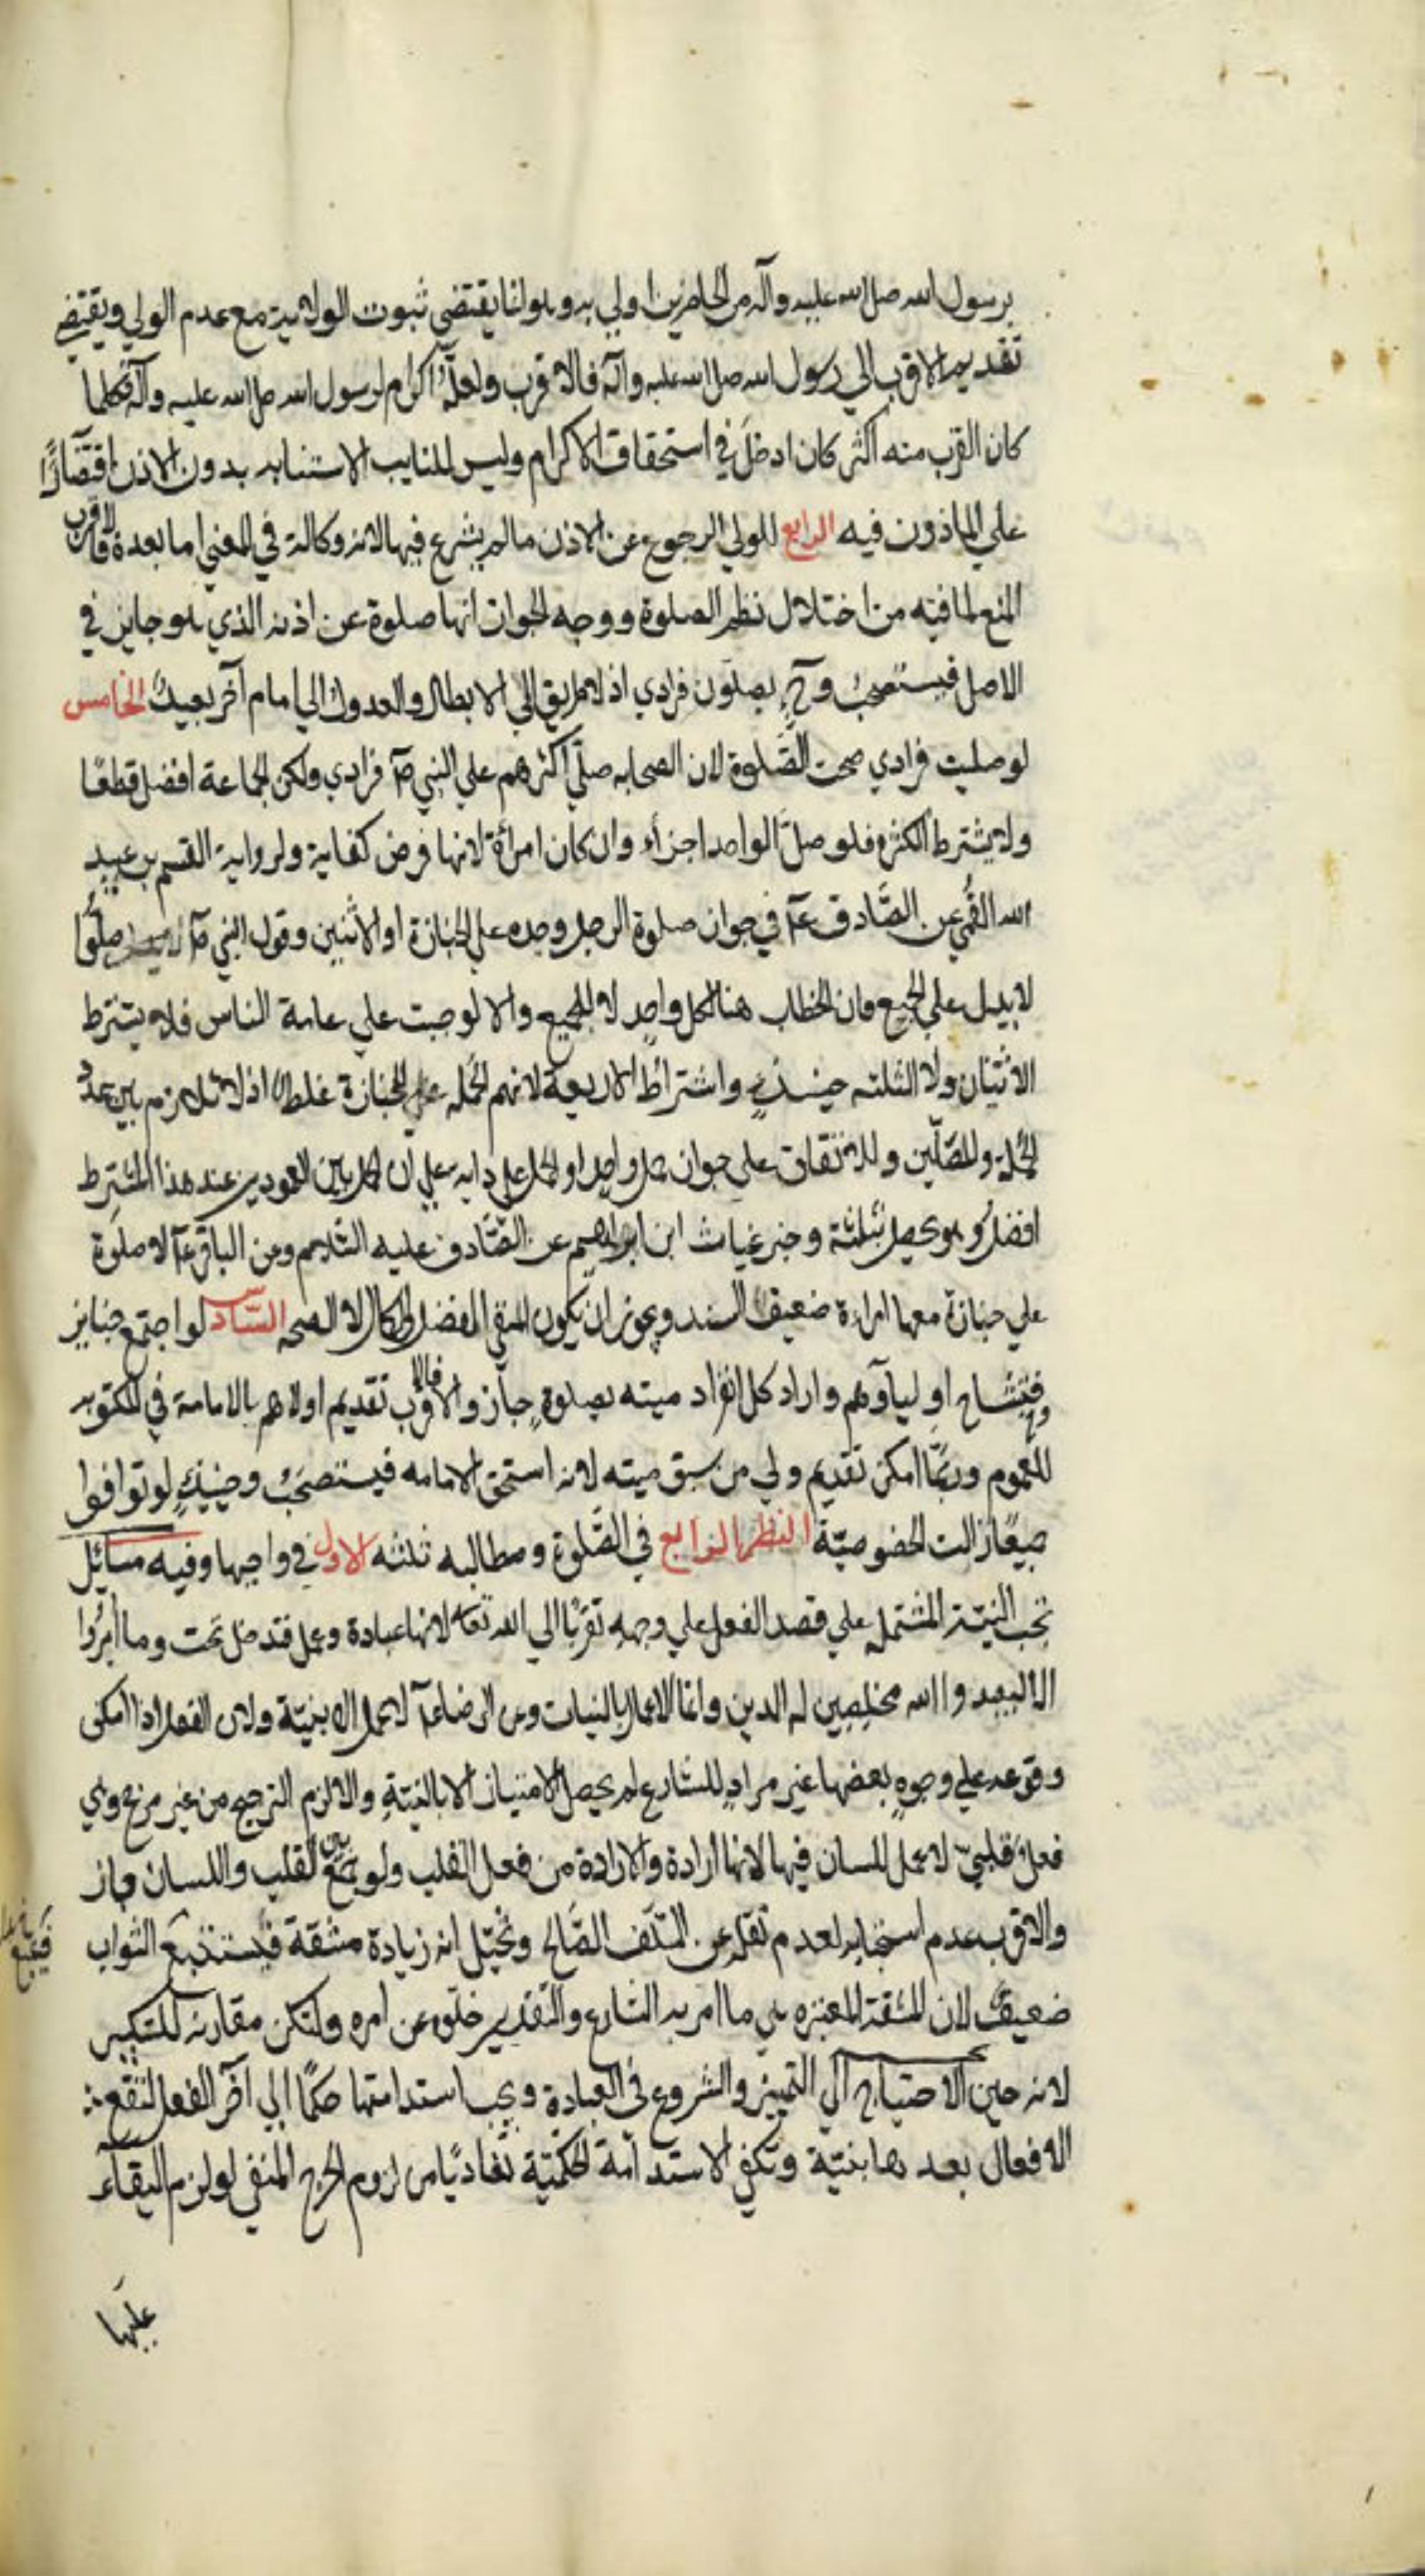 برسول الله صلى الله عليه وآله من الحاضرين اولي به وهولنا يقتضي ثبوت الولاية مع عدم الولي ويقتضي
تقديم الاقرب الي رسول الله صلى الله عليه وآله فالاقرب ولعله اكرام لرسول الله صلى الله عليه وآله فكلما
كان القرب منه اكثر كان ادخل في استحقاق الاكرام وليس للنايب الاستنابه بدون الاذن اقتصارًا
علي الماذون فيه الرابع للولي الرجوع عن الاذن مالم يشرع فيها لانه وكالة في المعني اما بعده فالاقرب
المنع لما فيه من اختلال نظم الصلوة ووجه الجواز انها صلوة عن اذنه الذي هو جايز في
الاصل فيستصحب وح يصلون فرادي اذ لا طريق الي الابطال والعدول الي امام آخر بعيد الخامس
لو صليت فرادي صحت الصلوة لان الصحابه صلي اكثرهم علي النبي صم فرادي ولكن الجماعة افضل قطعًا
ولا يشترط الكثرة فلو صلي الواحد اجزأ وان كان امرأة لانها فرض كفاية ولرواية القسم بن عبيد
الله القمي عن الصادق عم في جواز صلوة الرجل وحده علي الجنازة او الاثنين وقول النبي صم صلوا
لا يدل علي الجمع فان الخطاب هنا لكل واحد لا للجميع والا لوجبت علي عامة الناس فلا يشترط
الاثنان ولا الثلثه حينئذ واشتراط الاربعة لانهم الحمله علي الجنازة غلط اذ لا تلازم بين عدد
الحملة والمصلين وللاتفاق علي جواز حمل واحد او الحمل علي دابه علي ان الحمل بين العمودين عند هذا المشترط
افضل وهو يحصل بثلثة وخبر غياث ابن ابراهيم عن الصادق عليه السلام وعن الباقر عم لا صلوة
علي جنازة معها امراءة ضعيف السند ويجوز ان يكون المنفي الفضل والكمال لا الصحه السادس لو اجتمع جنايز
فتشاح اولياؤهم واراد كل افراد ميته بصلوة جاز والا فالاقرب تقديم اولاهم بالامامة في المكتوبه
للعموم وربما امكن تقديم ولي من سبق ميته لانه استحق الامامه فيستصحب وحينئذ لو توافوا
جميعًا زالت الخصوصية النظر الرابع في الصلوة ومطالبه ثلثه الاول في واجبها وفيه مسائل
تجب النية المشتمله علي قصد الفعل علي وجهه تقربًا الي الله تعالي لانها عبادة وعمل فتدخل تحت وما امروا
الا ليعبدوا الله مخلصين له الدين وانما الاعمال بالنيات وعن الرضا عم لا عمل الا بنية ولان الفعل اذا امكن
وقوعه علي وجوه بعضها غير مراد للشارع لم يحصل الامتياز الا بالنية والا لزم الترجيح من غير مرجح وهي
فعل قلبي لا عمل للسان فيها لانها ارادة والارادة من فعل القلب ولو جمع بين القلب واللسان جاز
والاقرب عدم استحبابه لعدم نقله عن السلف الصالح وتخيل انه زيادة مشقة فيستتبع الثواب
ضعيف لان المشقة المعتبره هي ما امر به الشارع والتقدير خلوه عن امره ولتكن مقارنه للتكبير
لانه حين الاحتياج الي التمييز والشروع في العبادة ويجب استدامتها حكمًا الي آخر الفعل لتقع
الافعال بعدها بنية وتكفي الاستدامة الحكمية تفاديًا من لزوم الحرج المنفي لو لزم البقاء
عليها